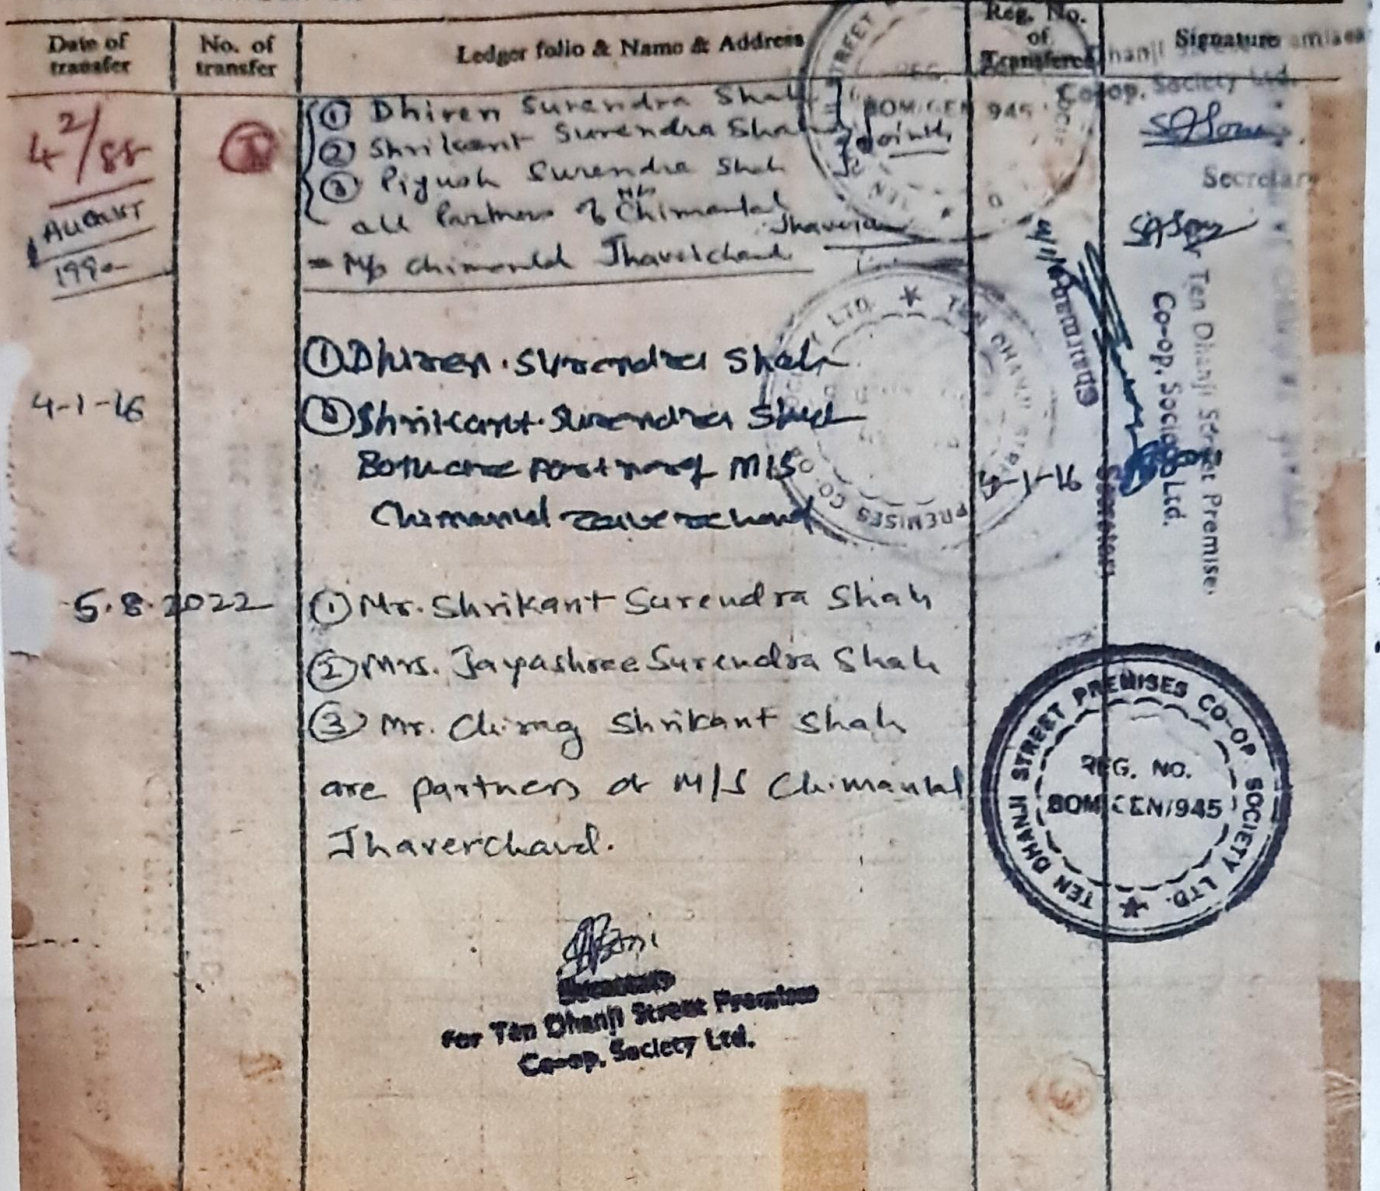 Date of transfer
No. of transfer
Ledger folio & Name & Address
Reg. No. of Transferee
Signature
4 2/88
I
① Dhiren Surendra Shah
② Shrikant Surendra Shah
③ Piyush Surendra Shah
Jointly
all Partners of M/s Chimanlal
Jhaverchand
= M/s Chimanlal Jhaverchand
August
1990
Dhanji Street Premises
Co-op. Society Ltd.
Secretary
STREET
REG.
BOM/GEN 945
TEN
① Dhiren. Surendra Shah
4-1-16
② Shrikant. Surendra Shah
Both are partner of M/S
Chimanlal Zaverchand
4-1-16
TEN DHANJI STREET PREMISES CO-OP. SOCIETY LTD.
Chairman
Secretary
Ten Dhanji Street Premises
Co-op. Society Ltd.
5.8.2022
① Mr. Shrikant Surendra Shah
② Mrs. Jayashree Surendra Shah
③ Mr. Chirag Shrikant Shah
are partners of M/S Chimanlal
Jhaverchand.
TEN DHANJI STREET PREMISES CO-OP SOCIETY LTD.
REG. NO.
BOM/GEN/945
Secretary
For Ten Dhanji Street Premises
Co-op. Society Ltd.